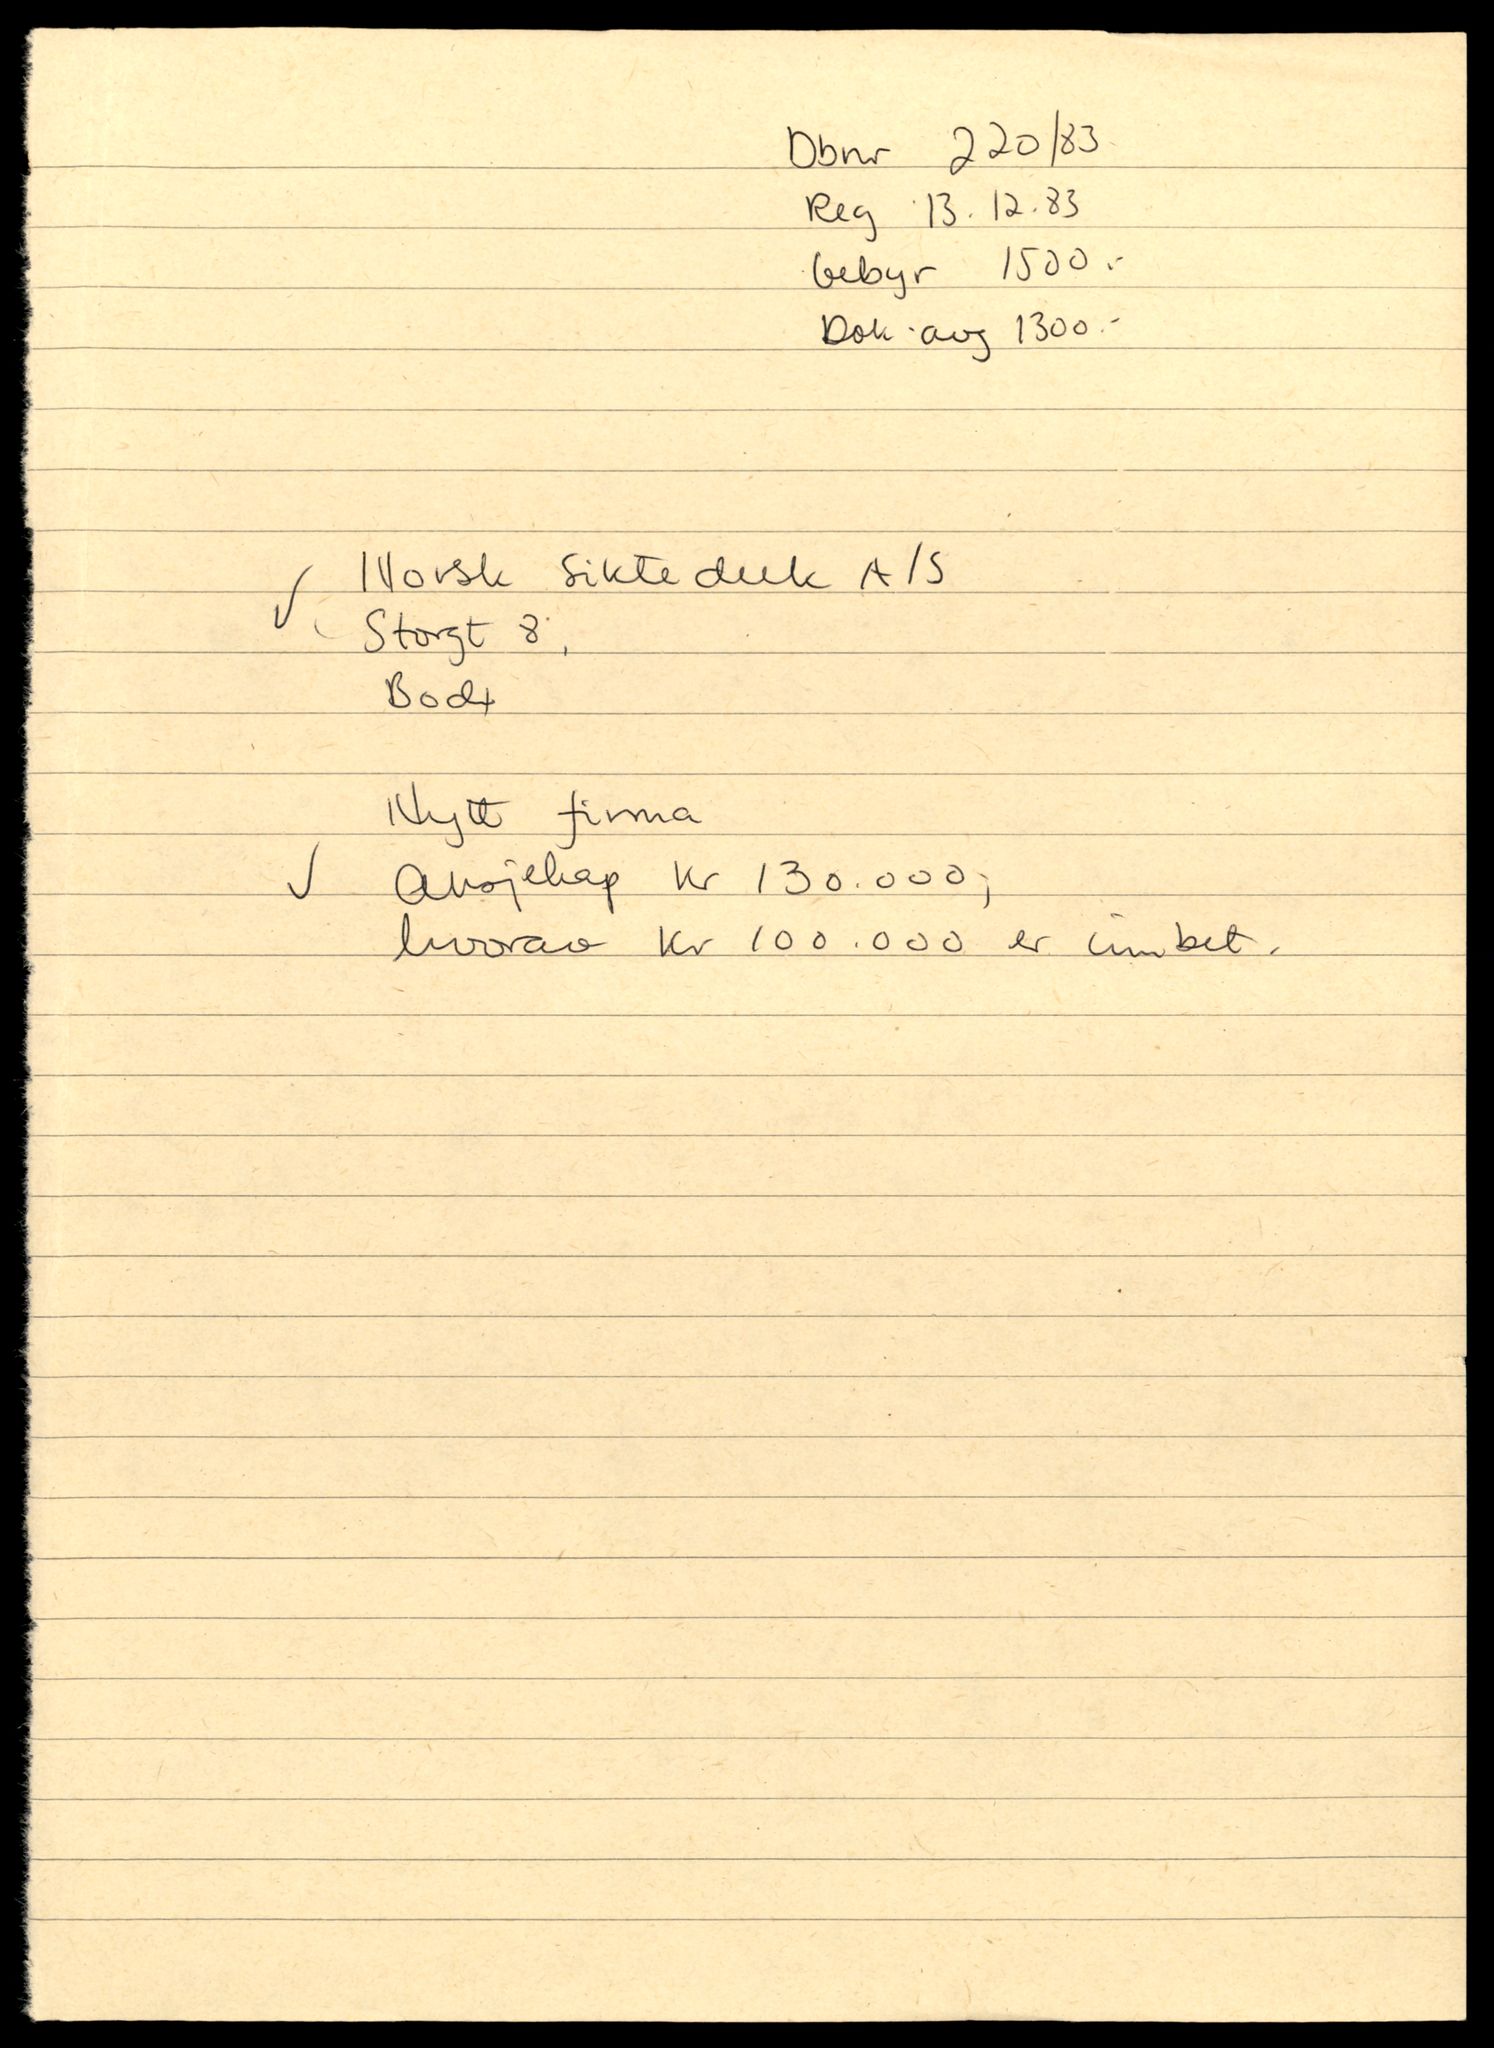 Dbnr 220/83
Reg 13.12.83
Gebyr 1500.-
Dok.avg 1300.-
Norsk Sikteduk A/S
Storgt 8,
Bodø
Nytt firma
Aksjekap kr 130.000,
hvorav kr 100.000 er innbet.